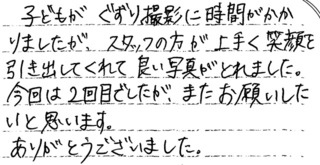 子どもが ぐずり撮影に時間がかか
りましたが、スタッフの方が上手く笑顔を
引き出してくれて良い写真がとれました。
今回は2回目でしたが、またお願いした
いと思います。
ありがとうございました。